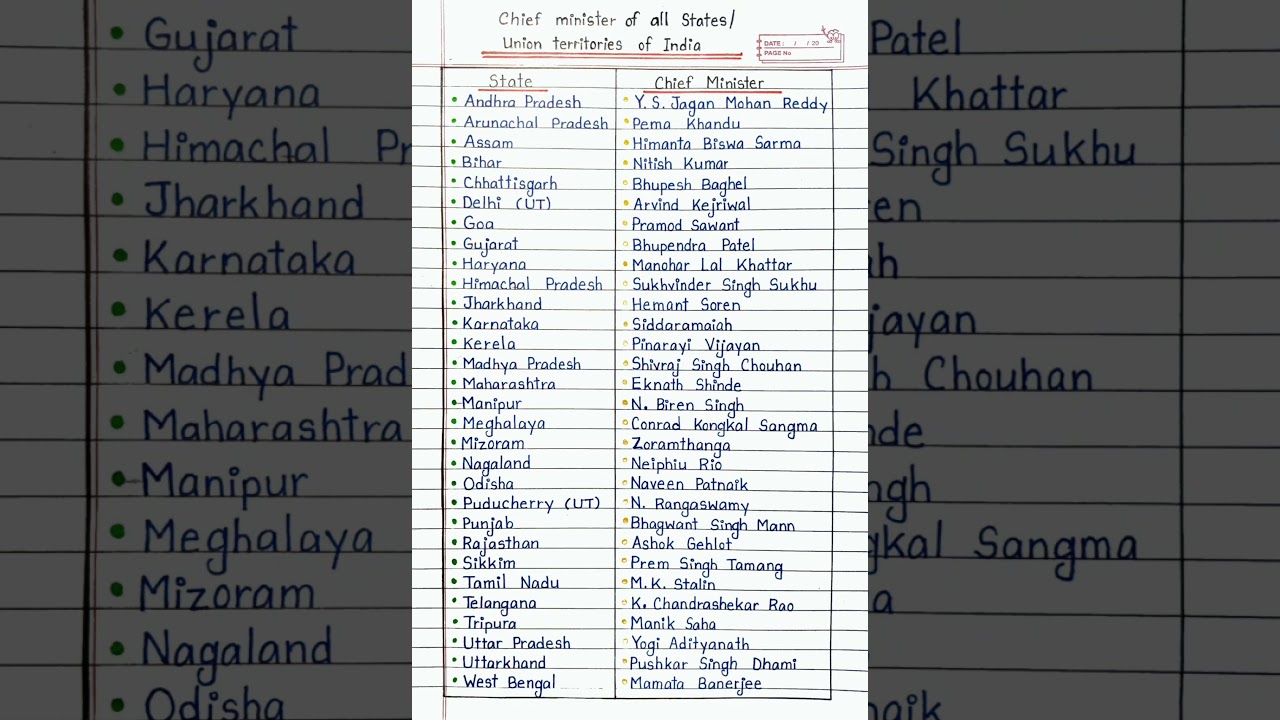 Chief minister of all States/
Union territories of India
DATE : / / 20
PAGE No
State Chief Minister
• Andhra Pradesh • Y. S. Jagan Mohan Reddy
• Arunachal Pradesh • Pema Khandu
• Assam • Himanta Biswa Sarma
• Bihar • Nitish Kumar
• Chhattisgarh • Bhupesh Baghel
• Delhi (UT) • Arvind Kejriwal
• Goa • Pramod Sawant
• Gujarat • Bhupendra Patel
• Haryana • Manohar Lal Khattar
• Himachal Pradesh • Sukhvinder Singh Sukhu
• Jharkhand • Hemant Soren
• Karnataka • Siddaramaiah
• Kerela • Pinarayi Vijayan
• Madhya Pradesh • Shivraj Singh Chouhan
• Maharashtra • Eknath Shinde
• Manipur • N. Biren Singh
• Meghalaya • Conrad Kongkal Sangma
• Mizoram • Zoramthanga
• Nagaland • Neiphiu Rio
• Odisha • Naveen Patnaik
• Puducherry (UT) • N. Rangaswamy
• Punjab • Bhagwant Singh Mann
• Rajasthan • Ashok Gehlot
• Sikkim • Prem Singh Tamang
• Tamil Nadu • M. K. Stalin
• Telangana • K. Chandrashekar Rao
• Tripura • Manik Saha
• Uttar Pradesh • Yogi Adityanath
• Uttarkhand • Pushkar Singh Dhami
• West Bengal • Mamata Banerjee
• Gujarat
• Haryana
• Himachal Pr
• Jharkhand
• Karnataka
• Kerela
• Madhya Prad
• Maharashtra
• Manipur
• Meghalaya
• Mizoram
• Nagaland
• Odisha
Patel
Khattar
Singh Sukhu
en
ah
jayan
h Chouhan
nde
ngh
gkal Sangma
a
naik